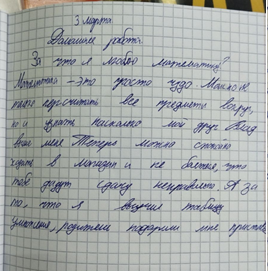 3 марта
Домашняя работа.
За что я люблю математику?
Математика - это просто чудо Можно не
только пересчитать все предметы вокруг,
но и узнать насколько мой друг Влад
выше меня Теперь можно спокойно
ходить в магазин и не бояться, что
тебе дадут сдачу неправильно. А за
то, что я выучил таблицу
умножения, родители подарили мне приставку